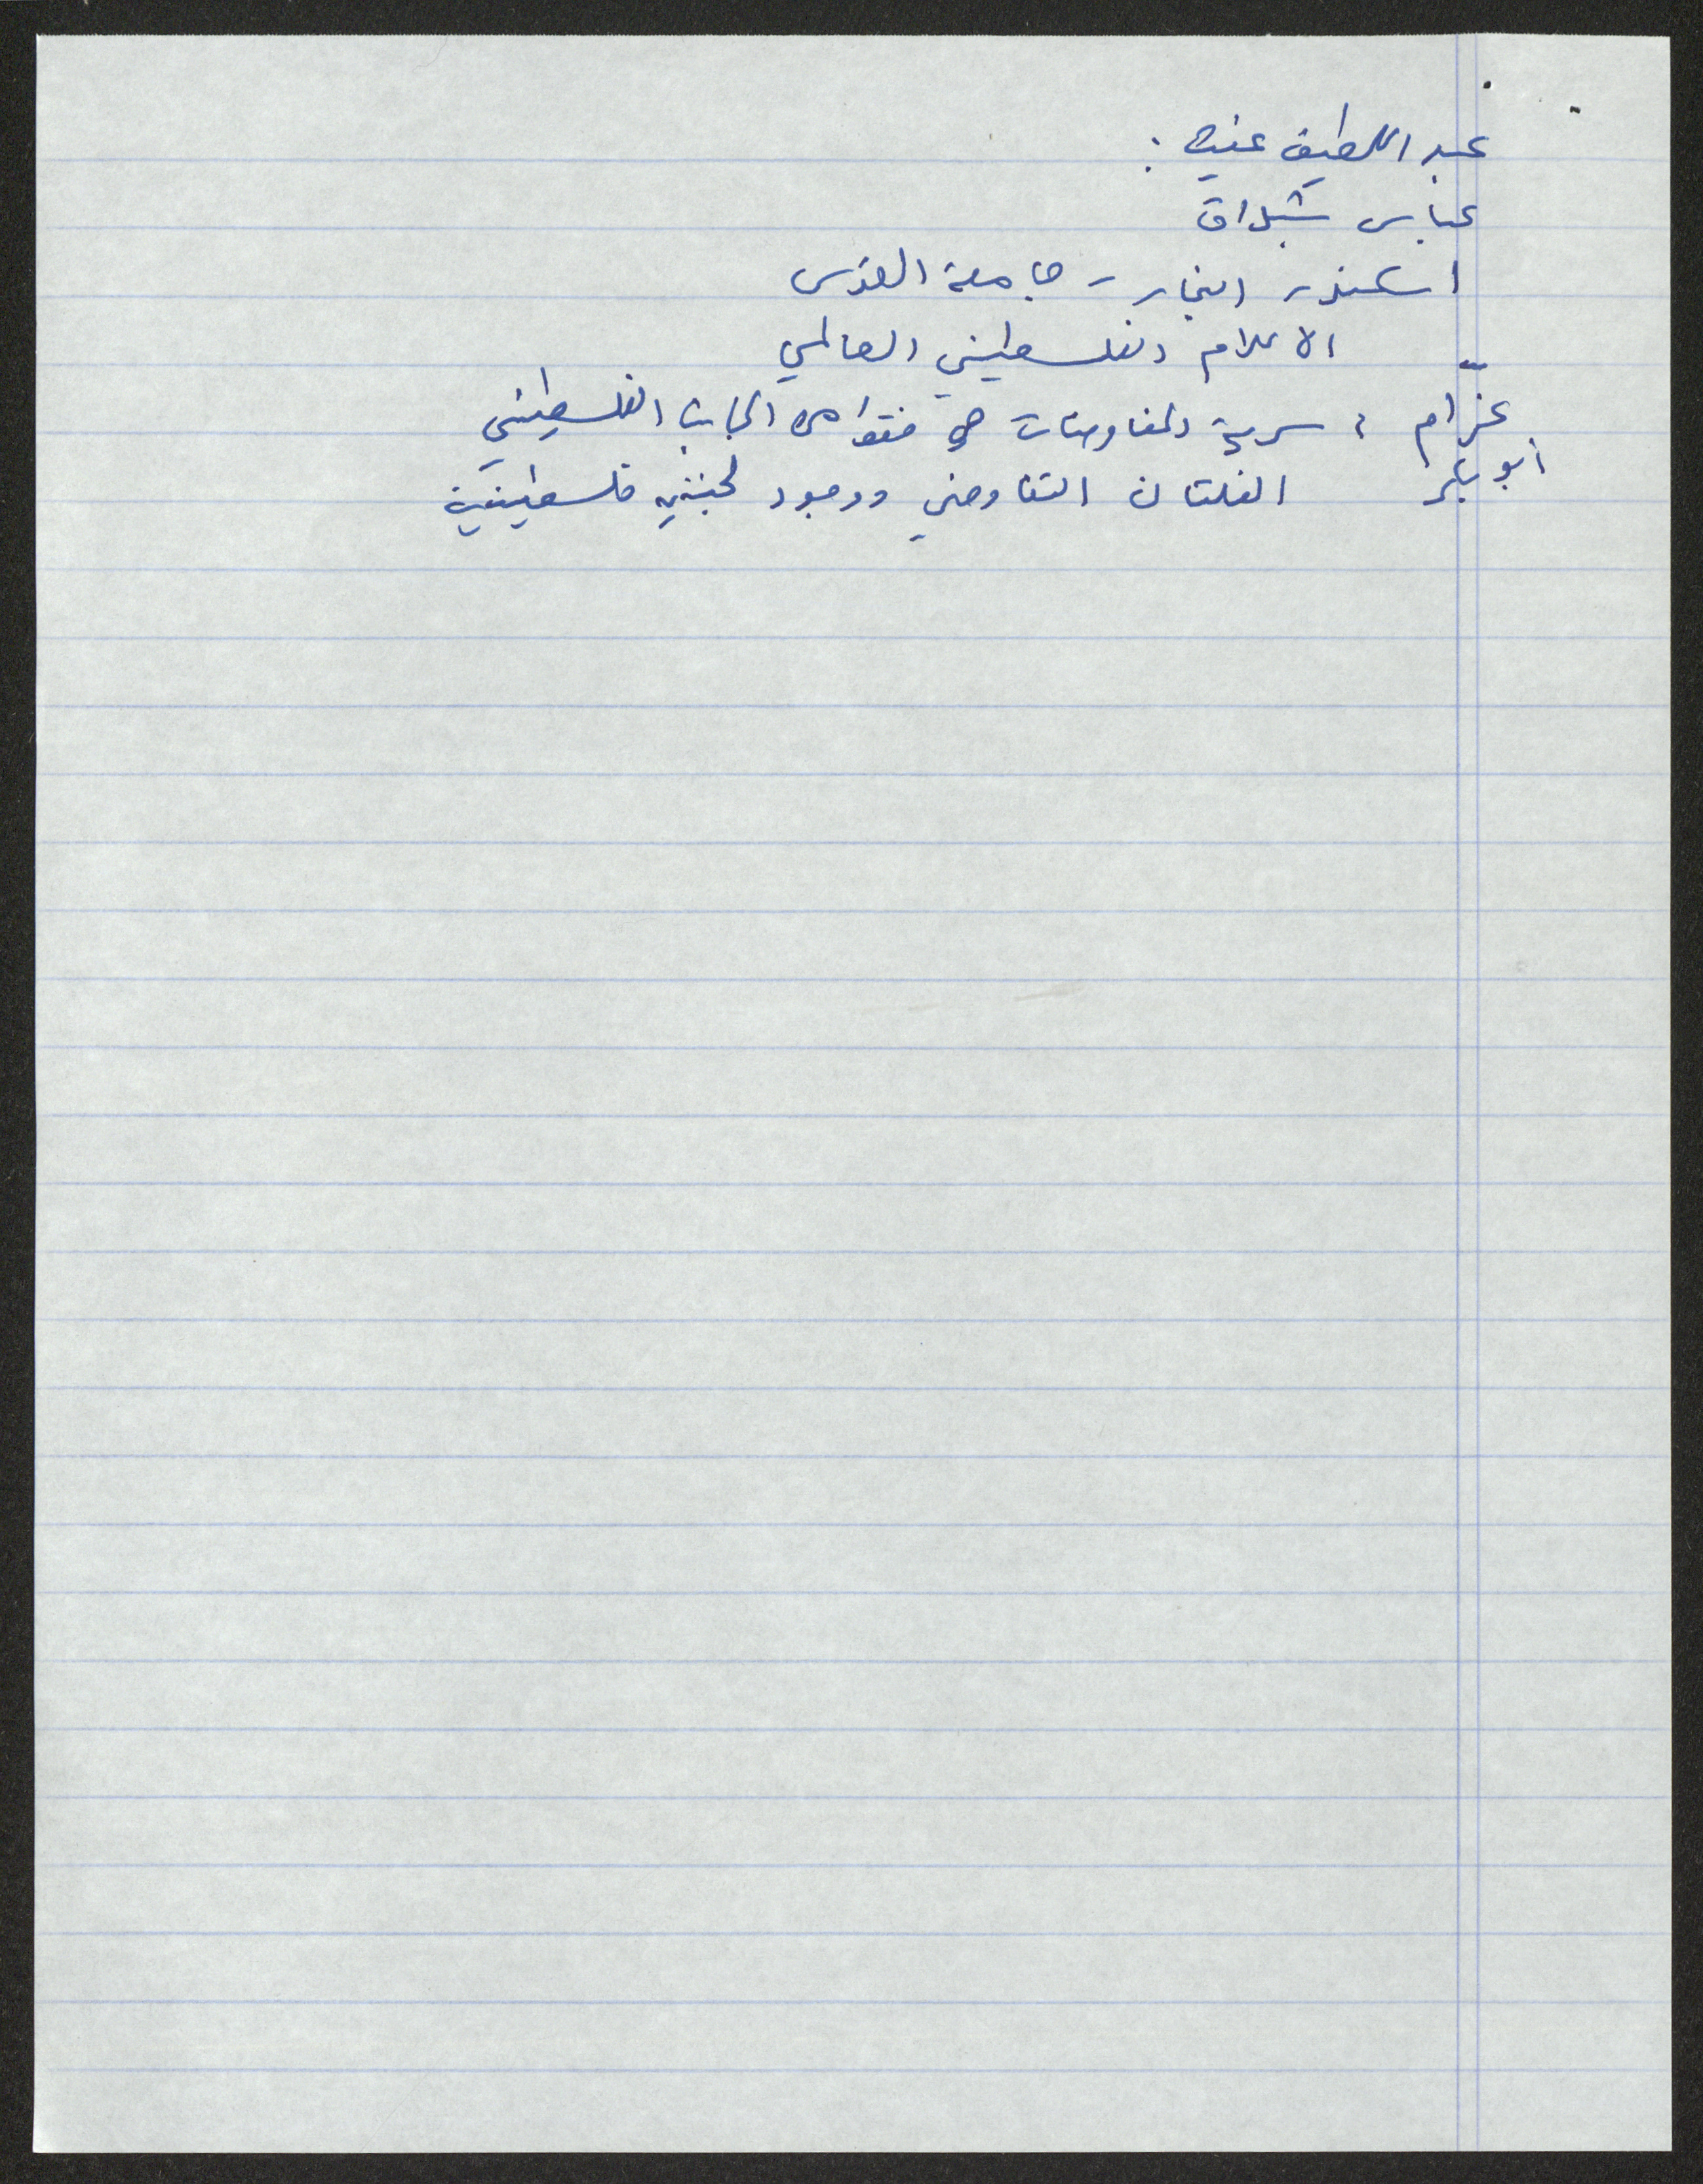 عبد اللطيف غيث :
عباس شبلاق
اسكندر النجار - جامعة القدس
الاعلام الفلسطيني العالمي
عزّام : سرية المفاوضات هي فقط من الجانب الفلسطيني
أبو بكر الفلتان التفاوضي ووجود فلسطينية